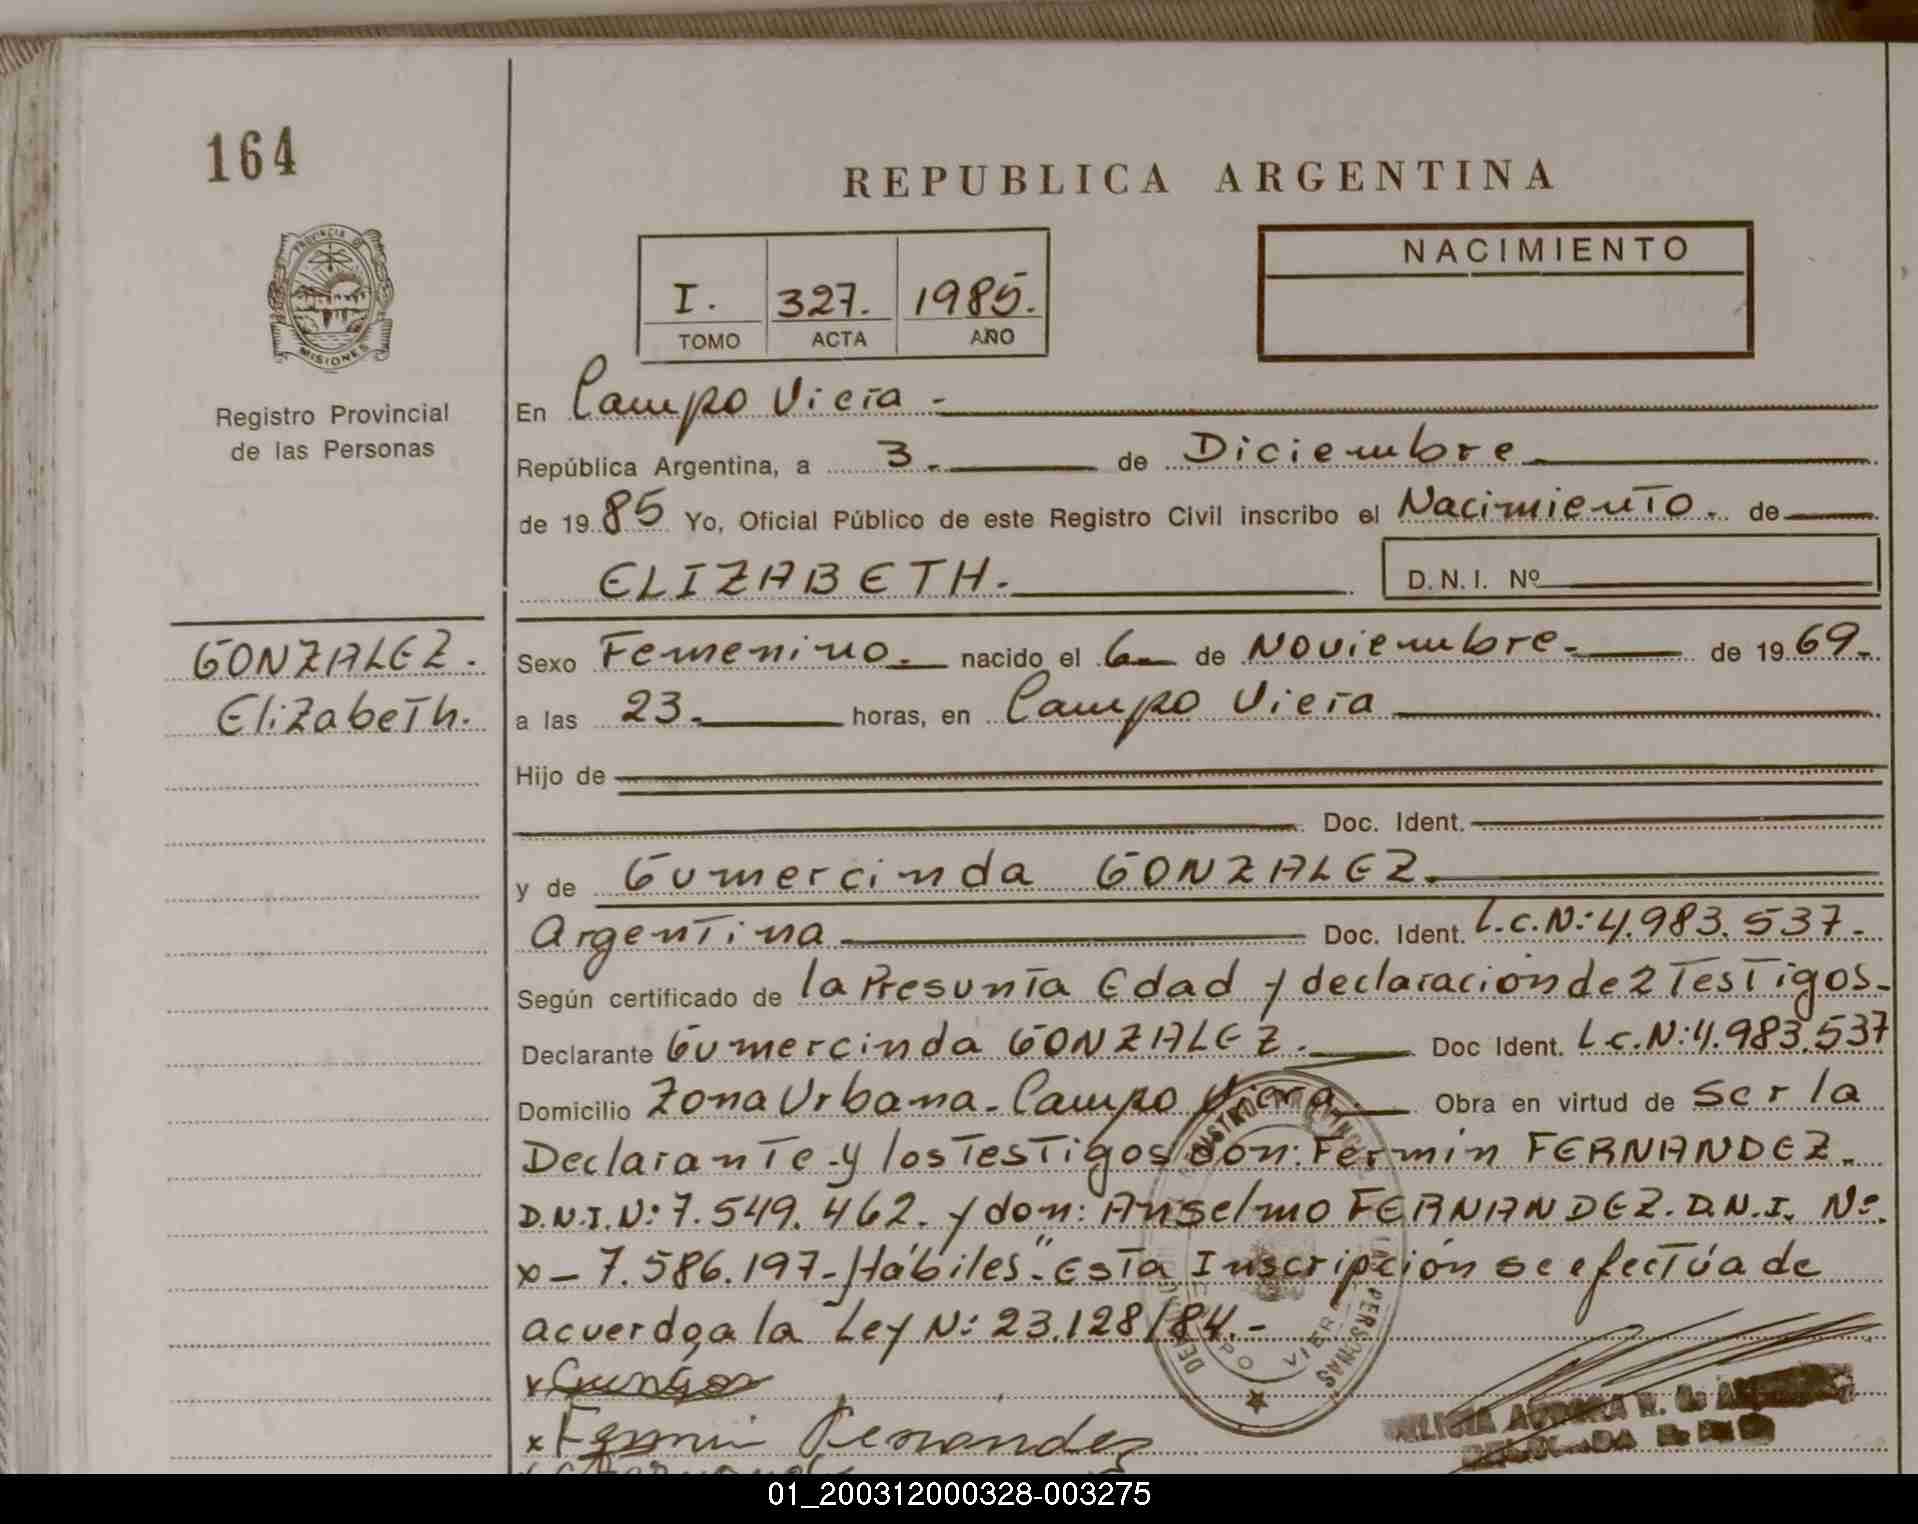 164
REPUBLICA ARGENTINA
PROVINCIA DE
MISIONES
Registro Provincial
de las Personas
I. 327. 1985.
TOMO ACTA AÑO
NACIMIENTO
En Campo Viera -
República Argentina, a 3. de Diciembre
de 19 85 Yo, Oficial Público de este Registro Civil inscribo el Nacimiento. de
ELIZABETH. D.N.I. Nº
GONZALEZ.
Elizabeth.
Sexo Femenino. nacido el 6 de Noviembre. de 19 69.
a las 23. horas, en Campo Viera
Hijo de
Doc. Ident.
y de Gumercinda GONZALEZ.
Argentina Doc. Ident. L.C.N: 4.983.537.-
Según certificado de la Presunta Edad y declaración de 2 Testigos.-
Declarante Gumercinda GONZALEZ. Doc Ident. L.C.N: 4.983.537
Domicilio Zona Urbana. Campo Viera Obra en virtud de ser la
Declarante y los Testigos don: Fermin FERNANDEZ.
D.N.I.N: 7.549.462. y don: Anselmo FERNANDEZ. D.N.I. Nº.
x- 7.586.197- Hábiles". Esta Inscripción se efectúa de
acuerdo a la Ley N: 23.128/84.-
x Fermin Fernandez
01_200312000328-003275